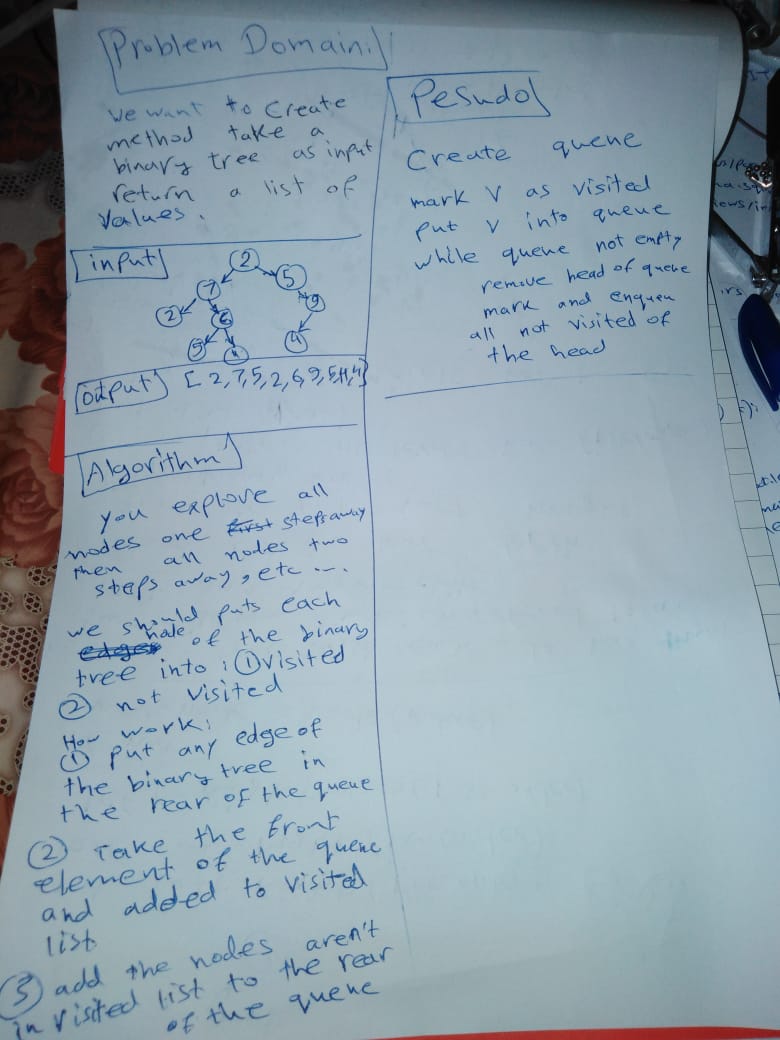 Problem Domain:
we want to create
method take a
binary tree as input
return a list of
Values.
input
2
7 5
2 6 9
5 4
output [ 2,7,5,2,6,9,5,11,4]
Algorithm
you explore all
nodes one first steps away
then all nodes two
steps away, etc ....
we should puts each
edges node of the binary
tree into : ① visited
② not visited
How work:
① put any edge of
the binary tree in
the rear of the queue
② Take the front
element of the quene
and added to visited
list
③ add the nodes aren't
in visited list to the rear
of the quene
Pesudo
Create quene
mark V as visited
put v into queue
while queue not empty
remove head of queue
mark and enqueu
all not visited of
the head